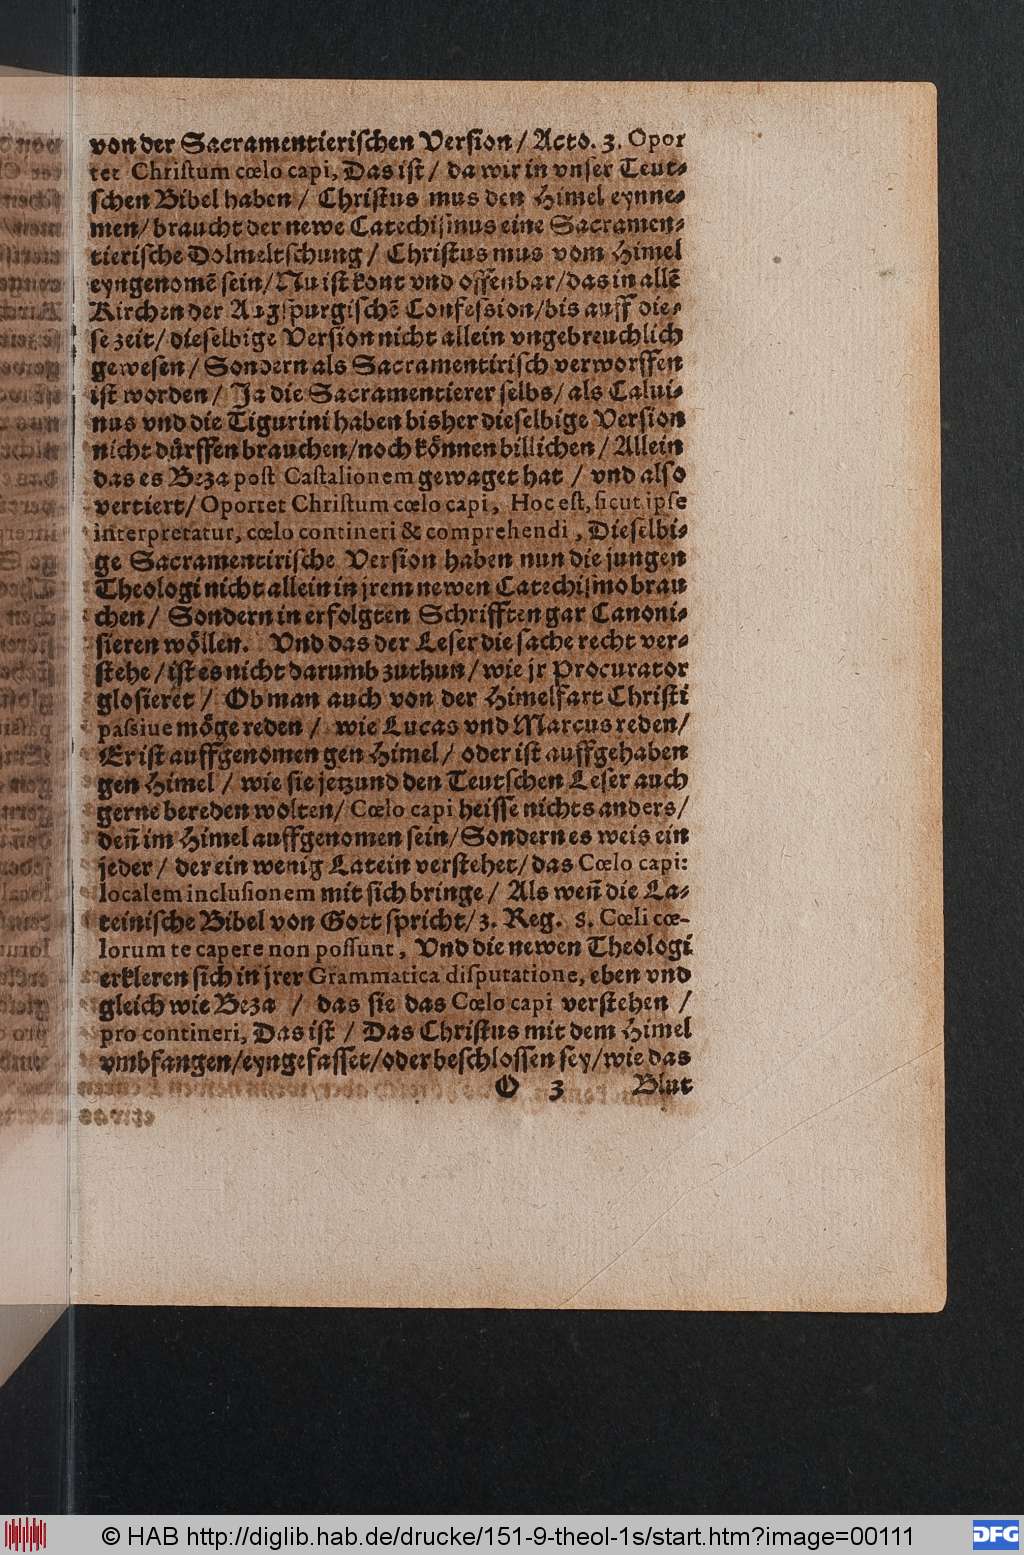 von der Sacramentieriſchen Verſion / Acto. 3. Opor
tet Chriſtum cœlo capi, Das iſt / da wir in vnſer Teut⸗
ſchen Bibel haben / Chriſtus mus den Himel eynne⸗
men / braucht der newe Catechiſmus eine Sacramen⸗
tieriſche Dolmeltſchung / Chriſtus mus vom Himel
eyngenomẽ ſein / Nu iſt kont vnd offenbar / das in allẽ
Kirchen der Augſpurgiſchẽ Confeſsion / bis auff die⸗
ſe zeit / dieſelbige Verſion nicht allein vngebreuchlich
geweſen / Sondern als Sacramentiriſch verworffen
iſt worden / Ja die Sacramentierer ſelbs / als Calui⸗
nus vnd die Tigurini haben bisher dieſelbige Verſion
nicht dürffen brauchen / noch können billichen / Allein
das es Beza poſt Caſtalionem gewaget hat / vnd alſo
vertiert / Oportet Chriſtum cœlo capi, Hoc eſt, ſicut ipſe
interpretatur, cœlo contineri & comprehendi, Dieſelbi⸗
ge Sacramentiriſche Verſion haben nun die jungen
Theologi nicht allein in jrem newen Catechiſmo brau
chen / Sondern in erfolgten Schrifften gar Canoni⸗
ſieren wöllen. Vnd das der Leſer die ſache recht ver⸗
ſtehe / iſt es nicht darumb zuthun / wie jr Procurator
gloſieret / Ob man auch von der Himelfart Chriſti
paſsiue möge reden / wie Lucas vnd Marcus reden /
Er iſt auffgenomen gen Himel / oder iſt auffgehaben
gen Himel / wie ſie jetzund den Teutſchen Leſer auch
gerne bereden wolten / Cœlo capi heiſſe nichts anders /
deñ im Himel auffgenomen ſein / Sondern es weis ein
jeder / der ein wenig Latein verſtehet / das Cœlo capi:
localem incluſionem mit ſich bringe / Als weñ die La⸗
teiniſche Bibel von Gott ſpricht / 3. Reg. 8. Cœli cœ-
lorum te capere non poſſunt, Vnd die newen Theologi
erkleren ſich in jrer Grammatica diſputatione, eben vnd
gleich wie Beza / das ſie das Cœlo capi verſtehen /
pro contineri, Das iſt / Das Chriſtus mit dem Himel
vmbfangen / eyngefaſſet / oder beſchloſſen ſey / wie das
O 3 Blut
© HAB http://diglib.hab.de/drucke/151-9-theol-1s/start.htm?image=00111
DFG